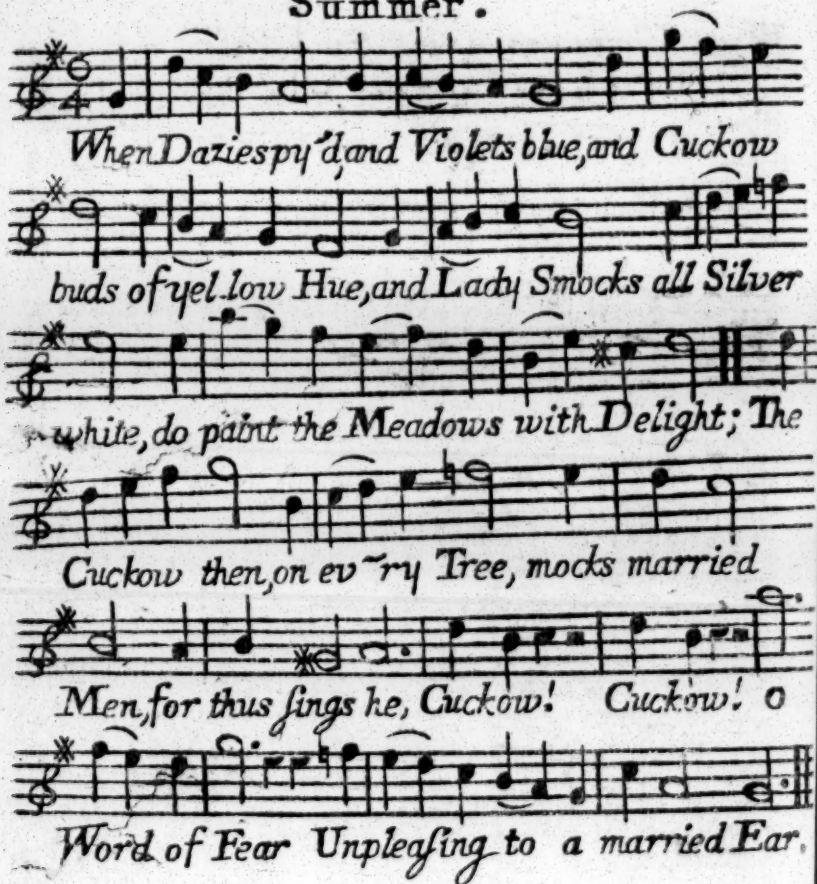 Summer.
6
4
When Dazies py'd, and Violets blue, and Cuckow
buds of yel.low Hue, and Lady Smocks all Silver
white, do paint the Meadows with Delight; The
Cuckow then, on ev~ry Tree, mocks married
Men, for thus ſings he, Cuckow! Cuckow! O
Word of Fear Unpleaſing to a married Ear.